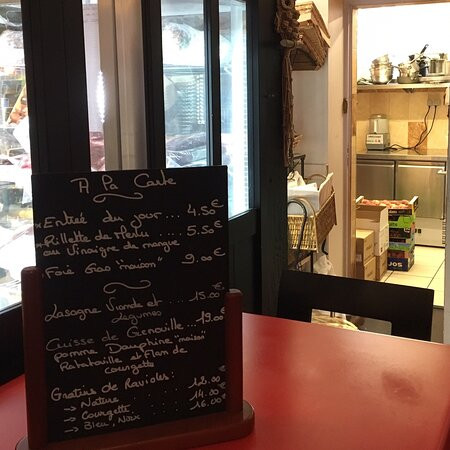 A La Carte
* Entrée du jour.... 4.50€
* Rillette de Merlu ..... 5.50€
au Vinaigre de mangue
* Foie Gras "maison" 9.00€
Lasagne Viande et ..... 15.00€
Légumes
Cuisse de Grenouille... 19.00€
pomme Dauphine "maison"
Ratatouille et Flan de
courgette
Gratins de Ravioles:
→ Nature ........ 12.90€
→ Courgette ..... 14.80€
→ Bleu, Noix .... 16.00€
JOS